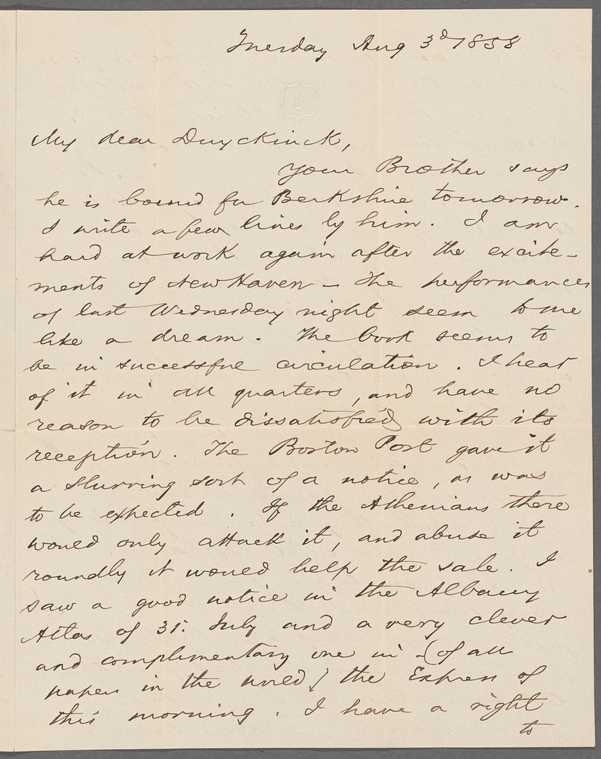 Tuesday Aug 3d 1858
My dear Duyckinck,
Your Brother says
he is bound for Berkshire tomorrow.
I write a few lines by him. I am
hard at work again after the excite-
ments of New Haven - The performances
of last Wednesday night seem to me
like a dream. The book seems to
be in successful circulation. I hear
of it in all quarters, and have no
reason to be dissatisfied with its
reception. The Boston Post gave it
a slurring sort of a notice, as was
to be expected. If the Athenians there
would only attack it, and abuse it
roundly it would help the sale. I
saw a good notice in the Albany
Atlas of 31. July and a very clever
and complimentary one in (of all
papers in the world) the Express of
this morning. I have a right
to